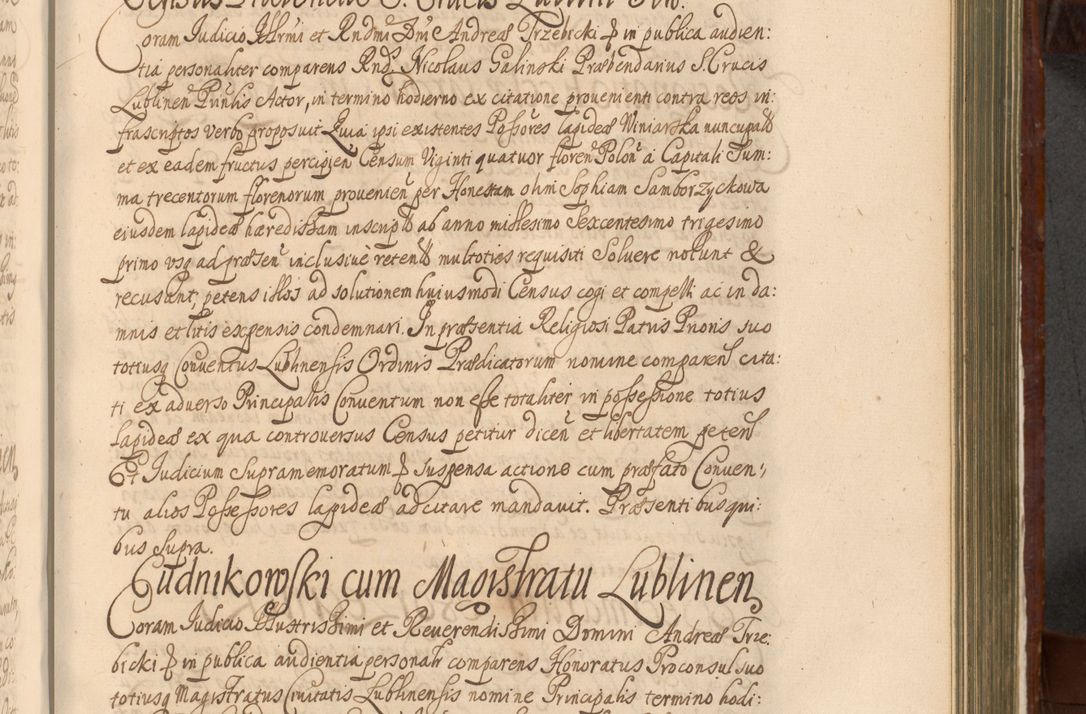 Coram Judicio Illrmi et Rndmi Dni Andreæ Trzebicki ꝑ in publica audien:
tia personaliter comparens Rndꝰ Nicolaus Galinski Præbendarius S. Crucis
Lublinen Prinlis Actor, in termino hodierno ex citatione provenienti contra reos in:
frascriptos verbo proposuit. Quia ipsi existentes Possores lapideæ Winiarska nuncupatæ
et ex eadem fructus percipien Censum Viginti quatuor floren Polon à Capitali Sum:
ma trecentorum florenorum provenien per Honestam olim Sophiam Samborzyckowa
eiusdem lapideæ hæredissam inscript ab anno millesimo Sexcentesimo trigesimo
primo usq ad præsen inclusiuè retent multoties requisiti Soluere nolunt &
recusant, petens illos ad solutionem huiusmodi Census cogi et compelli ac in da:
mnis et litis expensis condemnari. In præsentia Religiosi Patris Prioris suo
totiusq Conventus Lublinensis Ordinis Prædicatorum nomine comparen cita:
ti ex adverso Principalis Conventum non esse totaliter in possessione totius
lapideæ ex qua controversus Census petitur dicen et libertatem peten
Et Judicium Supramemoratum ꝑ suspensa actione cum præfato Conven:
tu alios Possessores lapideæ adcitare mandavit. Præsentibus qui:
bus supra.
Cudnikowski cum Magistratu Lublinen
Coram Judicio Illustrissimi et Reverendissimi Domini Andreæ Trze:
bicki ꝑ in publica audientia personalr comparens Honoratus Proconsul suo
totiusq Magistratus Civitatis Lublinensis nomine Principalis termino hodi: